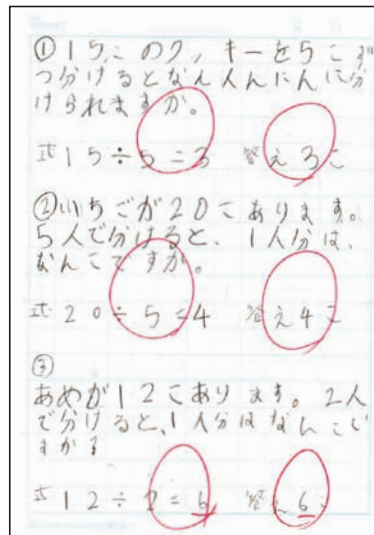 ①15このクッキーを5こず
つ分けるとなん人んにんに分
けられますか。
式15÷5=3 答え3こ
②いちごが20こあります。
5人で分けると、1人分は、
なんこですか。
式20÷5=4 答え4こ
③
あめが12こあります。2人
で分けると、1人分はなんこで
すか
式12÷2=6 答え6こ